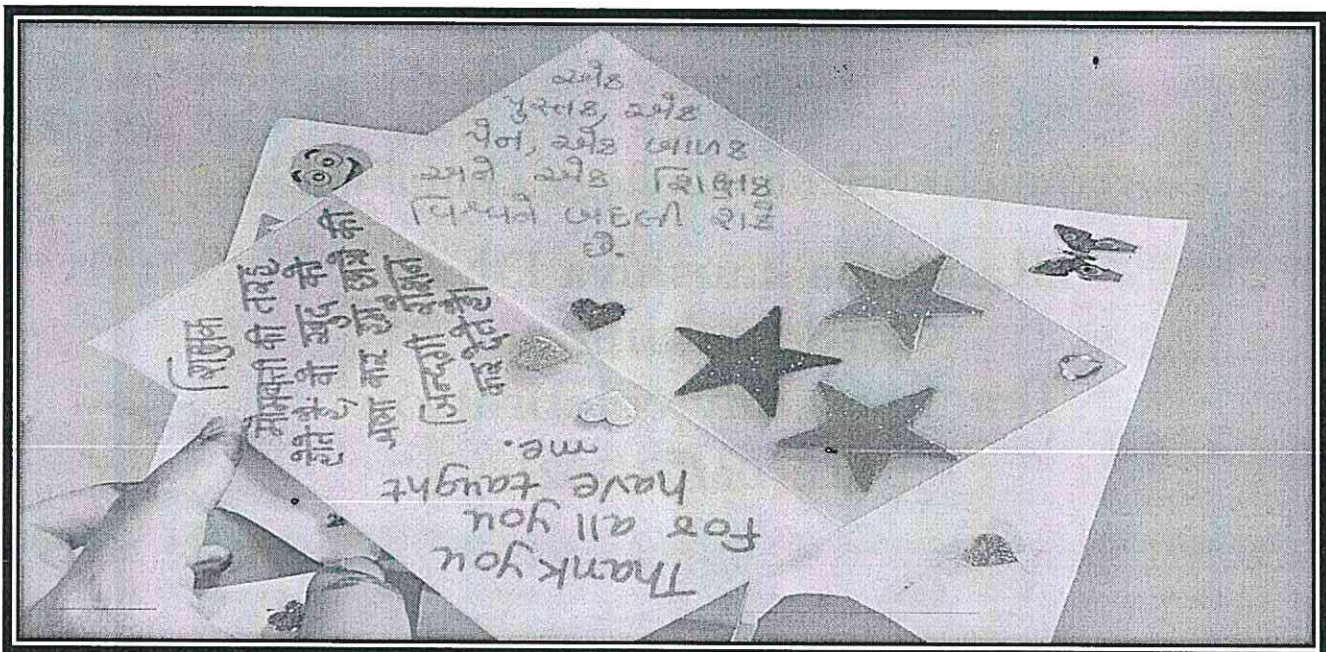 એક
પુસ્તક, એક
પેન, એક બાળક
અને એક શિક્ષક
વિશ્વને બદલી શકે
છે.
शिक्षक
मोमबत्ती की तरह
होते है, वो खुद को
जला कर हम छात्रो की
जिन्दगी रोशन
कर देते है।
Thank you
For all you
have taught
me.